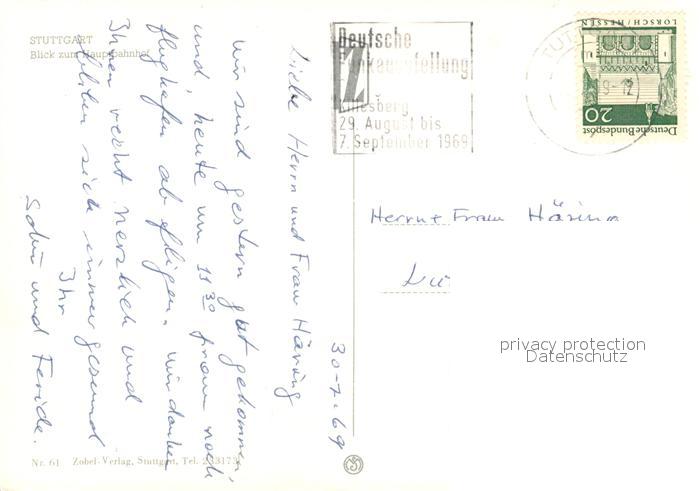 STUTTGART
Blick zum Hauptbahnhof
30-7-69
Liebe Herrn und Frau Häring
wir sind gestern gut gekommen,
und, heute um 11 30 from noch
flughafen ab fligen. wir danken
Ihnen recht herzlich und
bleiben sich immer gesund
Ihr
und Feride.
Nr. 61 Zobel-Verlag, Stuttgart, Tel.
Deutsche
Funkausstellung
Killesberg
29. August bis
7. September 1969
LORSCH/HESSEN
20
Deutsche Bundespost
9-12
Herrn + Frau Häring
privacy protection
Datenschutz